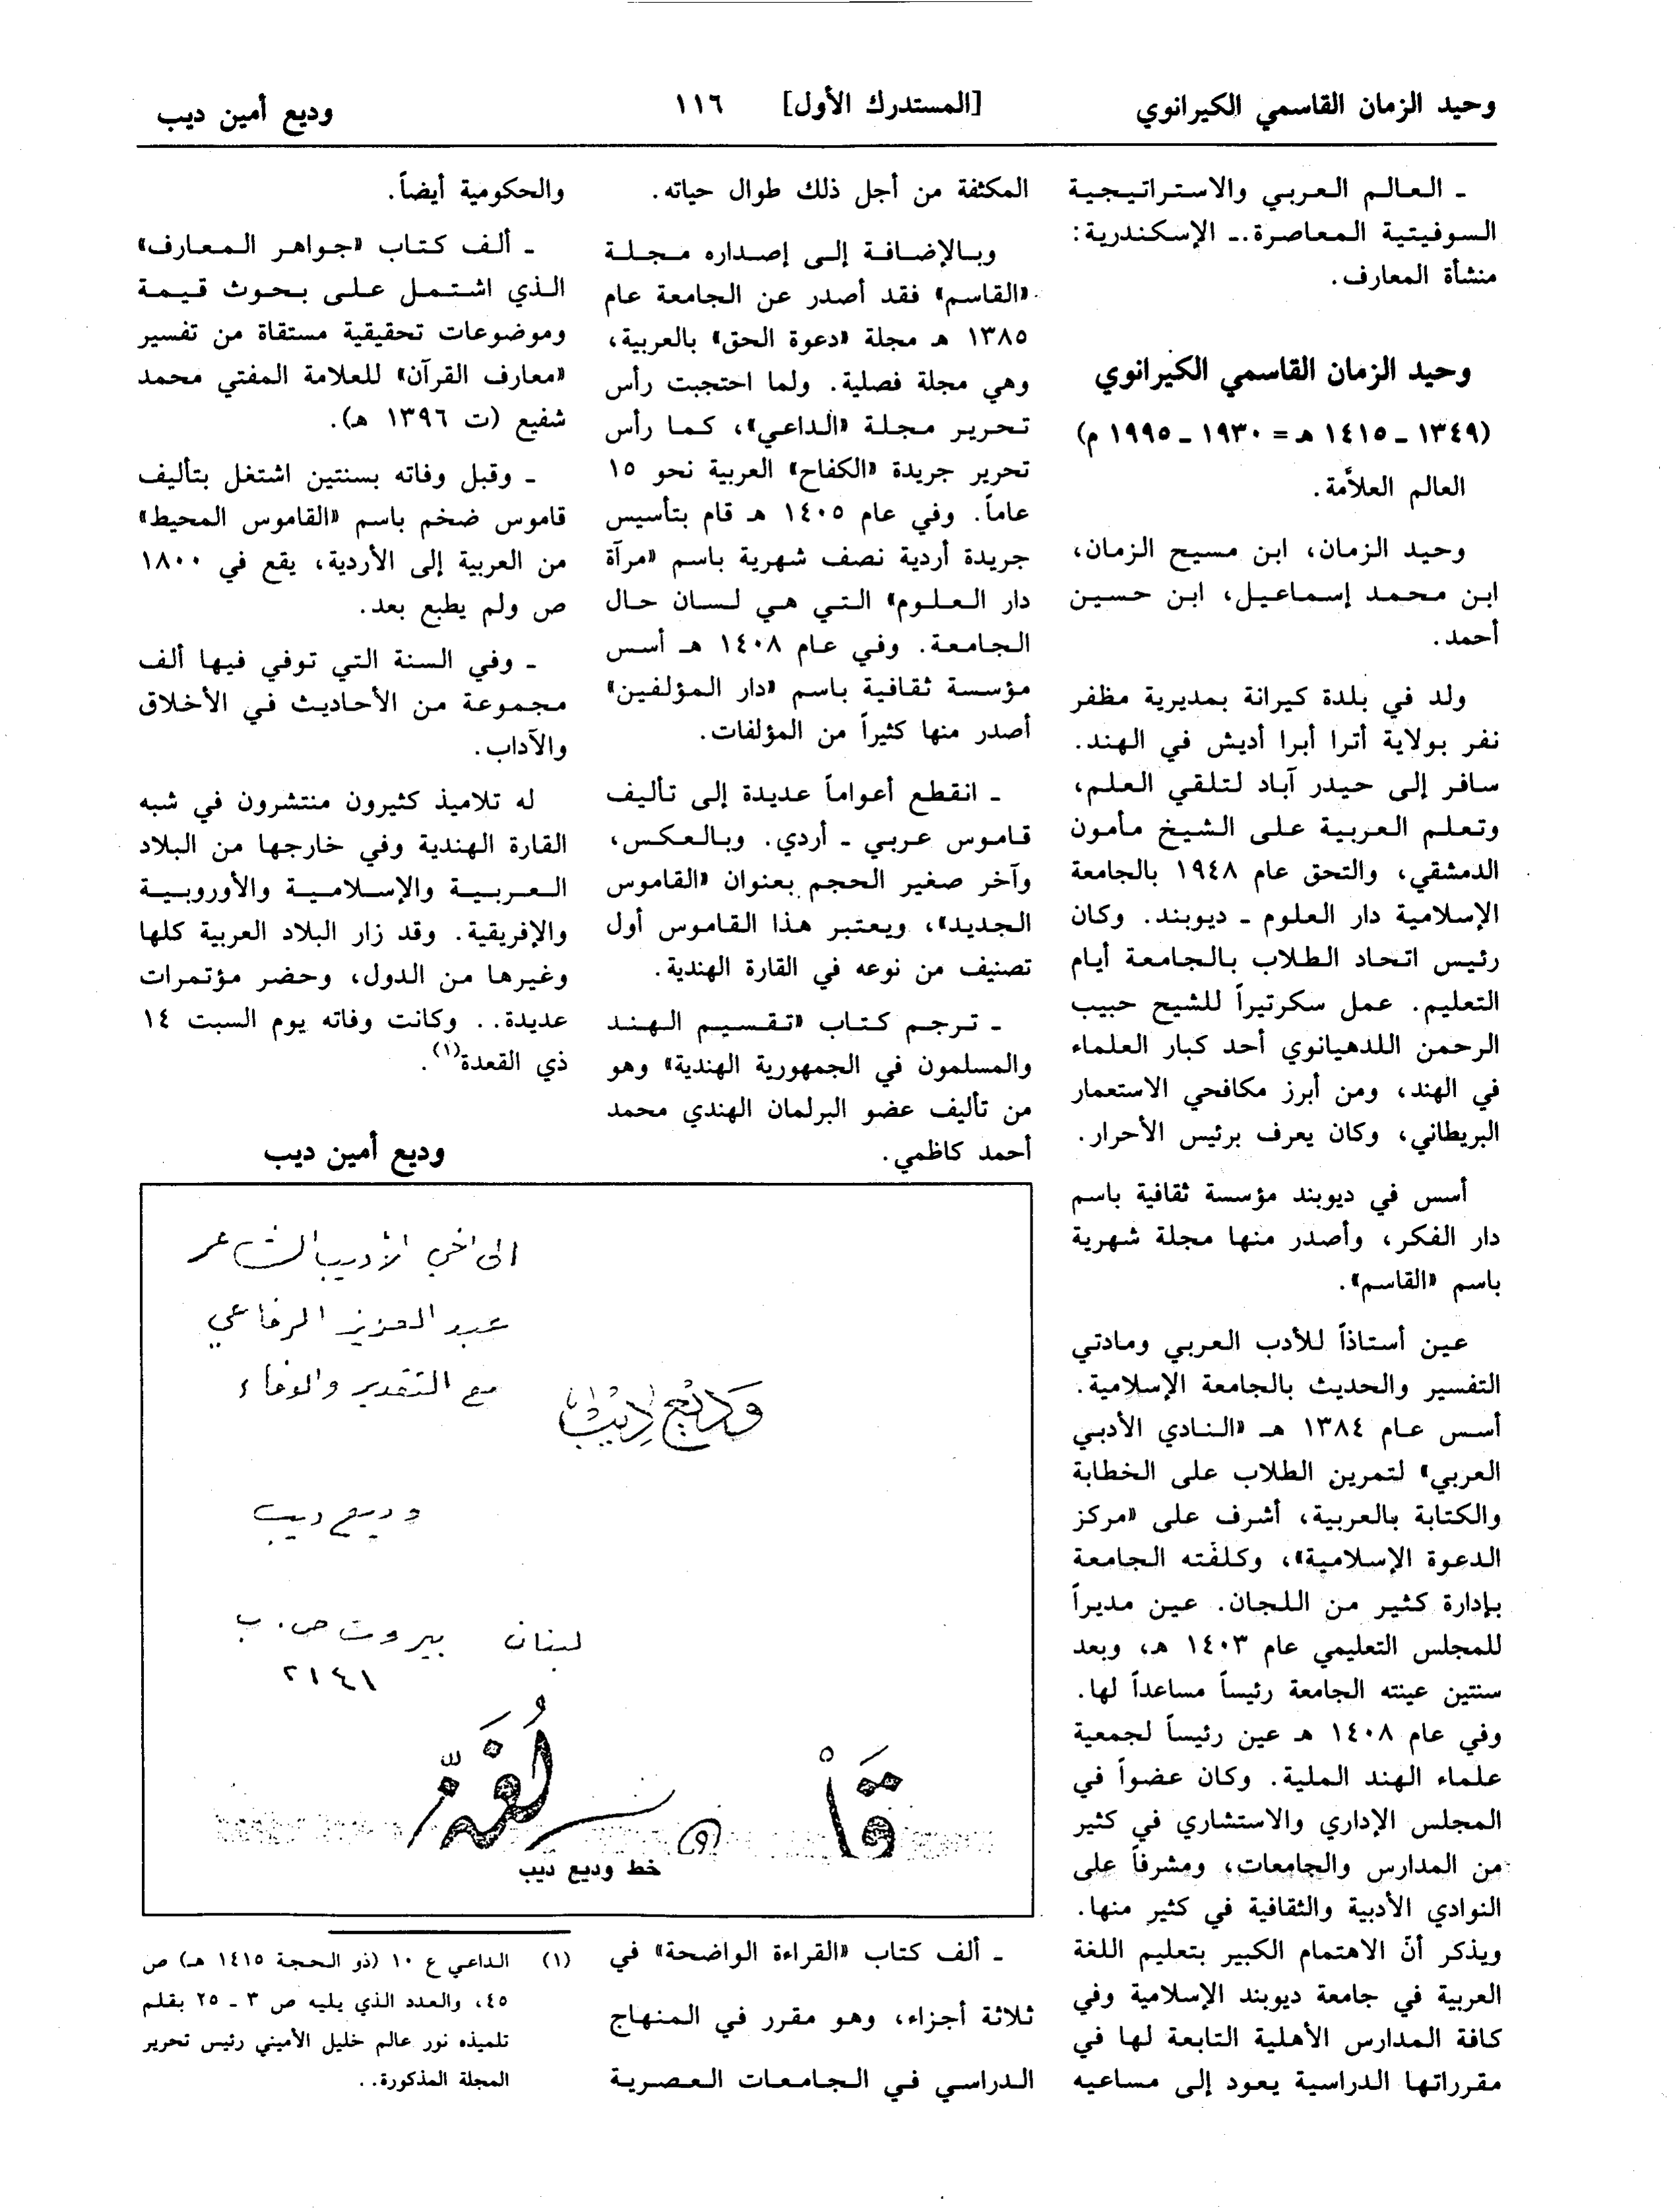 وحيد الزمان القاسمي الكيرانوي
[المستدرك الأول] ١١٦
وديع أمين ديب
ـ العالم العربي والاستراتيجية
السوفيتية المعاصرة.ـ الإسكندرية:
منشأة المعارف.
وحيد الزمان القاسمي الكيرانوي
(١٣٤٩ ـ ١٤١٥ هـ = ١٩٣٠ ـ ١٩٩٥ م)
العالم العلاَّمة.
وحيد الزمان، ابن مسيح الزمان،
ابن محمد إسماعيل، ابن حسين
أحمد.
ولد في بلدة كيرانة بمديرية مظفر
نفر بولاية أترا أبرا أديش في الهند.
سافر إلى حيدر آباد لتلقي العلم،
وتعلم العربية على الشيخ مأمون
الدمشقي، والتحق عام ١٩٤٨ بالجامعة
الإسلامية دار العلوم ـ ديوبند. وكان
رئيس اتحاد الطلاب بالجامعة أيام
التعليم. عمل سكرتيراً للشيح حبيب
الرحمن اللدهيانوي أحد كبار العلماء
في الهند، ومن أبرز مكافحي الاستعمار
البريطاني، وكان يعرف برئيس الأحرار.
أسس في ديوبند مؤسسة ثقافية باسم
دار الفكر، وأصدر منها مجلة شهرية
باسم «القاسم».
عين أستاذاً للأدب العربي ومادتي
التفسير والحديث بالجامعة الإسلامية.
أسس عام ١٣٨٤ هـ «النادي الأدبي
العربي» لتمرين الطلاب على الخطابة
والكتابة بالعربية، أشرف على «مركز
الدعوة الإسلامية»، وكلفته الجامعة
بإدارة كثير من اللجان. عين مديراً
للمجلس التعليمي عام ١٤٠٣ هـ، وبعد
سنتين عينته الجامعة رئيساً مساعداً لها.
وفي عام ١٤٠٨ هـ عين رئيساً لجمعية
علماء الهند الملية. وكان عضواً في
المجلس الإداري والاستشاري في كثير
من المدارس والجامعات، ومشرفاً على
النوادي الأدبية والثقافية في كثير منها.
ويذكر أنّ الاهتمام الكبير بتعليم اللغة
العربية في جامعة ديوبند الإسلامية وفي
كافة المدارس الأهلية التابعة لها في
مقرراتها الدراسية يعود إلى مساعيه
المكثفة من أجل ذلك طوال حياته.
وبالإضافة إلى إصداره مجلة
«القاسم» فقد أصدر عن الجامعة عام
١٣٨٥ هـ مجلة «دعوة الحق» بالعربية،
وهي مجلة فصلية. ولما احتجبت رأس
تحرير مجلة «الداعي»، كما رأس
تحرير جريدة «الكفاح» العربية نحو ١٥
عاماً. وفي عام ١٤٠٥ هـ قام بتأسيس
جريدة أردية نصف شهرية باسم «مرآة
دار العلوم» التي هي لسان حال
الجامعة. وفي عام ١٤٠٨ هـ أسس
مؤسسة ثقافية باسم «دار المؤلفين»
أصدر منها كثيراً من المؤلفات.
ـ انقطع أعواماً عديدة إلى تأليف
قاموس عربي ـ أردي. وبالعكس،
وآخر صغير الحجم بعنوان «القاموس
الجديد»، ويعتبر هذا القاموس أول
تصنيف من نوعه في القارة الهندية.
ـ ترجم كتاب «تقسيم الهند
والمسلمون في الجمهورية الهندية» وهو
من تأليف عضو البرلمان الهندي محمد
أحمد كاظمي.
ـ ألف كتاب «القراءة الواضحة» في
ثلاثة أجزاء، وهو مقرر في المنهاج
الدراسي في الجامعات العصرية
والحكومية أيضاً.
ـ ألف كتاب «جواهر المعارف»
الذي اشتمل على بحوث قيمة
وموضوعات تحقيقية مستقاة من تفسير
«معارف القرآن» للعلامة المفتي محمد
شفيع (ت ١٣٩٦ هـ).
ـ وقبل وفاته بسنتين اشتغل بتأليف
قاموس ضخم باسم «القاموس المحيط»
من العربية إلى الأردية، يقع في ١٨٠٠
ص ولم يطبع بعد.
ـ وفي السنة التي توفي فيها ألف
مجموعة من الأحاديث في الأخلاق
والآداب.
له تلاميذ كثيرون منتشرون في شبه
القارة الهندية وفي خارجها من البلاد
العربية والإسلامية والأوروبية
والإفريقية. وقد زار البلاد العربية كلها
وغيرها من الدول، وحضر مؤتمرات
عديدة.. وكانت وفاته يوم السبت ١٤
ذي القعدة(١).
وديع أمين ديب
الى اخي الأديب الشاعر
عبد العزيز الرفاعي
مع التقدير والوفاء
وديع ديب
وديع ديب
لبنان بيروت ص. ب
٢١٤١
خط وديع ديب
(١) الداعي ع ١٠ (ذو الحجة ١٤١٥ هـ) ص
٤٥، والعدد الذي يليه ص ٣ ـ ٢٥ بقلم
تلميذه نور عالم خليل الأميني رئيس تحرير
المجلة المذكورة..